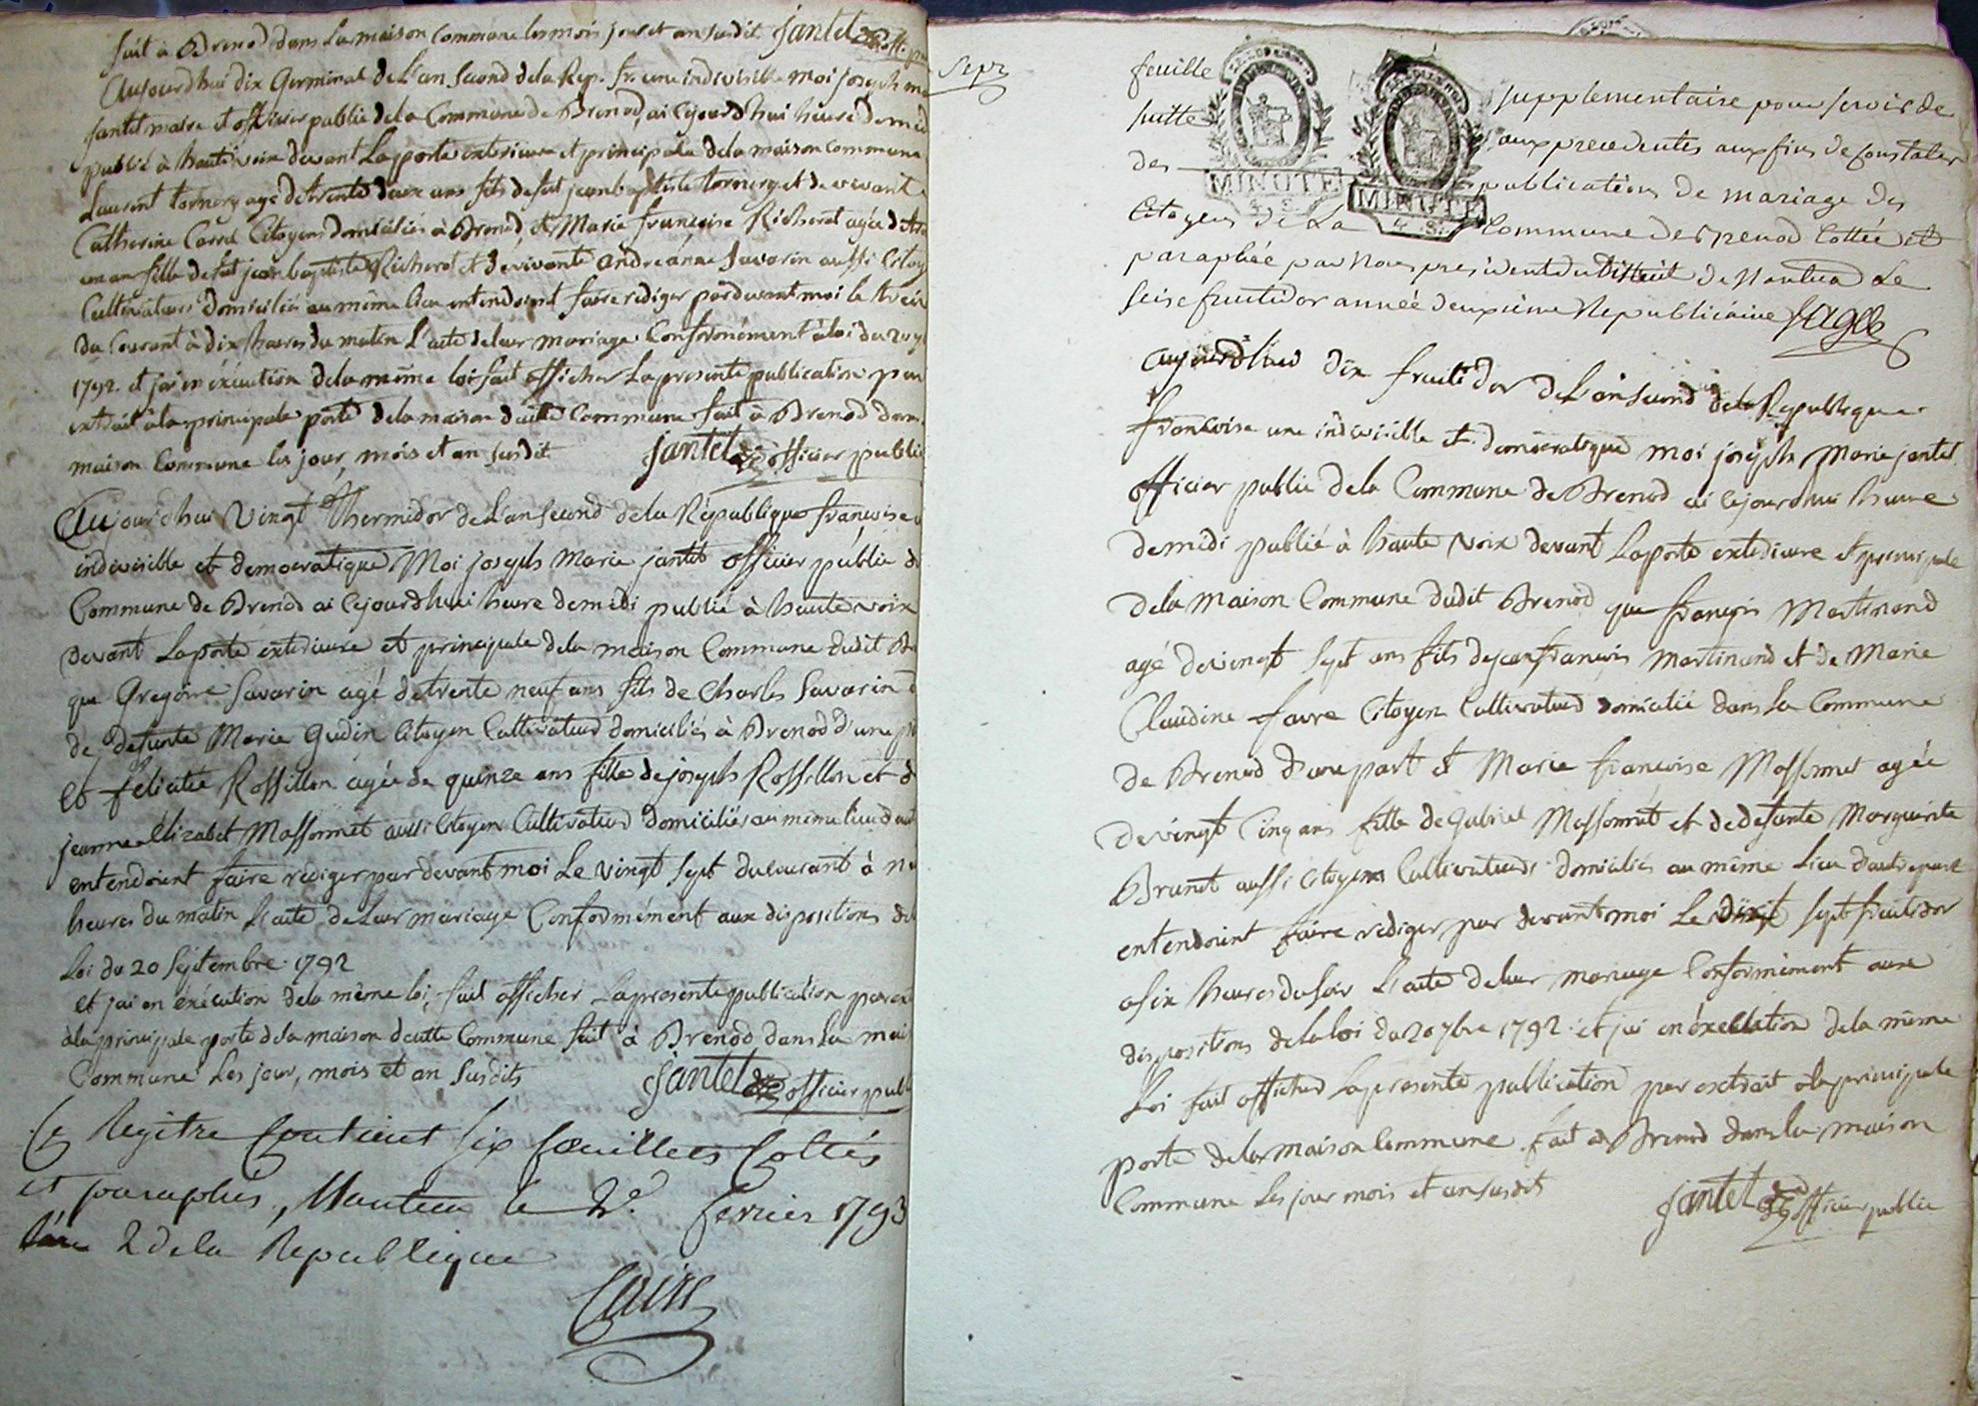 fait à Brenod dans la maison commune les mois jour et an susdit Jantet off. pu
Aujourd'hui dix Germinal de l'an second de la Rep. fr. une indivisible moi joseph m
jantet maire et officier public de la Commune de Brenod, ai cejourd'hui heure de mid
publié à haute voix devant la porte exterieure et principale de la maison commune
Laurent tornery agé de trente deux ans fils de fut jean baptiste tornery et de vivante
Catherine Carrel Citoyens domiciliés à Brenod, et Marie francoise Richerot agée de tre
un an fille de fut jean baptiste Richerot et de vivante andréanne Savarin aussi Citoy
Cultivateurs domiciliés au même lieu entendoient faire rediger pardevant moi le treiz
du Courant à dix heures du matin l'acte de leur mariage Conformément à loi du 20 7
1792. et j'ai en éxécution de la même loi fait afficher la presente publication par
extrait à la principale porte de la maison de cette Commune fait à Brenod dans
maison Commune les jour, mois et an susdit Jantet officier public
Aujourd'hui Vingt Thermidor de l'an second de la République francoise
indivisible et democratique Moi joseph Marie jantet officier public d
Commune de Brenod ai cejourd'hui heure de midi publié à haute voix
devant la porte exterieure et principale de la maison Commune dudit Br
que Gregoire Savarin agé de trente neuf ans fils de Charles Savarin
de defunte Marie Gudin Citoyen Cultivateur domiciliés à Brenod d'une p
et félicitée Rossillon agée de quinze ans fille de joseph Rossillon et d
jeanne Elizabet Massonnet aussi Citoyens Cultivateurs domiciliés au même lieu d'aut
entendoient faire rediger par devant moi le vingt sept du courant à n
heures du matin l'acte de leur mariage Conformément aux dispositions de
Loi du 20 Septembre 1792
et j'ai en éxécution de la même loi, fait afficher la presente publication par ex
à la principale porte de la maison de cette Commune fait à Brenod dans la mai
Commune Les jour, mois et an susdits Jantet officier publ
Ce Registre Contient six feuillees Cottés
et paraphés, Nantua le 2e. fevrier 1793
l'an 2 de la Republique
Sept
feuille supplementaire pour servir de
suitte aux precedentes aux fins de constater
des publications de mariage des
Citoyens de La Commune de Brenod Cottée et
paraphée par Nous president du District de Nantua le
seise fructidor année deuxième Republicaine
MINUTE
4 S.
MINUTE
4 S.
aujourd'hui dix fructidor de l'an second de la Republique
francoise une indivisible et democratique moi joseph Marie jantet
officier public de la Commune de Brenod ai cejourd'hui heure
de midi publié à haute voix devant la porte exterieure et principale
de la Maison Commune dudit Brenod que françois Martinand
agé de vingt sept ans fils de jean françois Martinand et de Marie
Claudine favre Citoyen Cultivateur domicilié dans la Commune
de Brenod d'une part et Marie francoise Massonnet agée
de vingt Cinq ans fille de Gabriel Massonnet et de defunte Marguerite
Brunet aussi Citoyens Cultivateurs domiciliés au même lieu d'autre part
entendoient faire rediger par devant moi Le sept fructidor
a six heures du soir l'acte de leur mariage Conformément aux
dispositions de la loi du 20 7bre 1792. et j'ai en éxécution de la même
Loi fait afficher la presente publication par extrait à la principale
porte de la maison Commune fait à Brenod dans la maison
Commune les jour mois et an susdits Jantet officier public